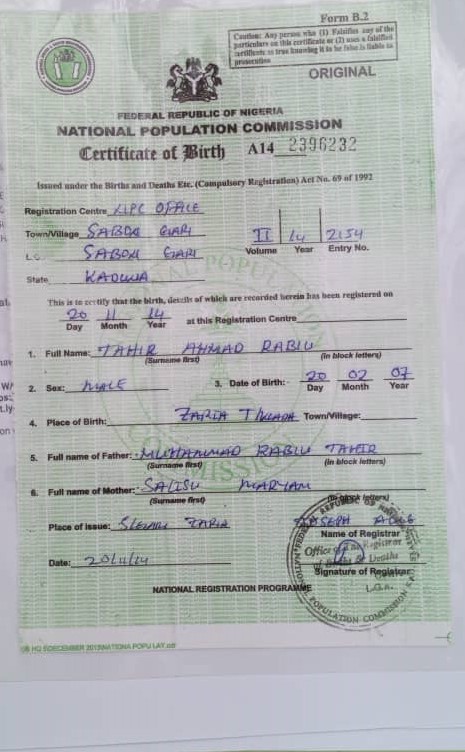 Form B.2
Caution: Any person who (1) Falsifies any of the
particulars on this certificate or (2) uses a falsified
certificate as true knowing it to be false is liable to
prosecution
ORIGINAL
FEDERAL REPUBLIC OF NIGERIA
NATIONAL POPULATION COMMISSION
Certificate of Birth A14 2396232
Issued under the Births and Deaths Etc. (Compulsory Registration) Act No. 69 of 1992
Registration Centre NPC OFFICE
Town/Village SABON GARI
II 14 2154
L.G. SABON GARI Volume Year Entry No.
State KADUNA
This is to certify that the birth, details of which are recorded herein has been registered on
20 11 14
Day Month Year at this Registration Centre
1. Full Name: TAHIR AHMAD RABIU
(Surname first) (In block letters)
2. Sex: MALE 3. Date of Birth: 20 02 07
Day Month Year
4. Place of Birth: ZARIA Town/Village:
5. Full name of Father: MUHAMMAD RABIU TAHIR
(Surname first) (In block letters)
6. Full name of Mother: SALISU MARYAM
(Surname first) (In block letters)
Place of issue: ZARIA JOSEPH
Name of Registrar
Date: 20/11/14
Signature of Registrar
NATIONAL REGISTRATION PROGRAMME
POPULATION COMMISSION